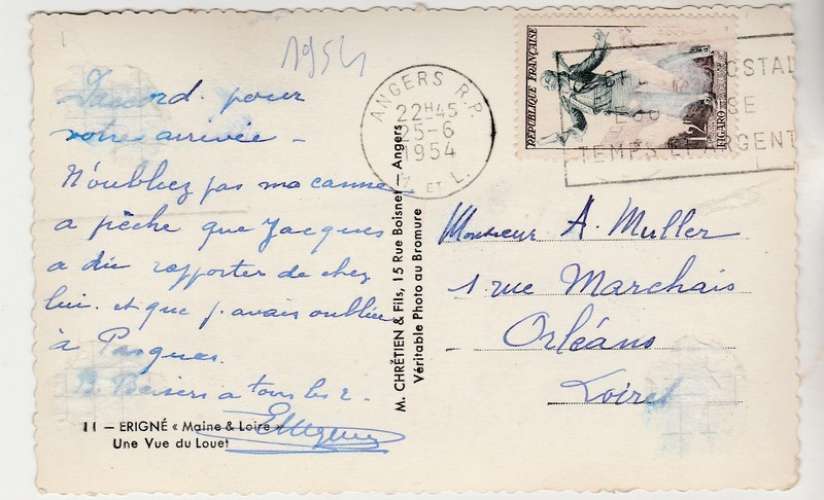 1954
D'accord pour
votre arrivée -
N'oubliez pas ma canne
a pêche que Jacques
a du rapporter de chez
lui et que j'avais oubliée
à Pasques.
B. Baisers a tous les 2.
11 — ERIGNÉ « Maine & Loire »
Une Vue du Louet
M. CHRÉTIEN & Fils, 15 Rue Boisnet — Angers
Véritable Photo au Bromure
ANGERS R.P.
22H45
25-6
1954
ET L.
REPUBLIQUE FRANÇAISE
12F
FIGARO
POSTAL
TEMPS ET ARGENT
Monsieur A. Muller
1 rue Marchais
Orléans
Loiret